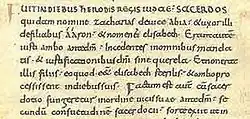 FUIT IN DIEBUS hERODIS REGIS IUDAE SACERDOS
quidam nomine Zacharias de uice abia & uxor illi
de filiabus AARON & nomen eius elisabeth Erant autem
iusti ambo ante dm Incedentes in omnibus manda
tis & iustificationibus dni sine querela Et non erat
illis filius eo quod esset elisabeth sterilis & ambo pro
cessissent in diebus suis Factum est autem cum sacer
dotio fungeretur in ordine uicis suae ante dm se
cundu consuetudine sacerdotii sorte exiit ut in